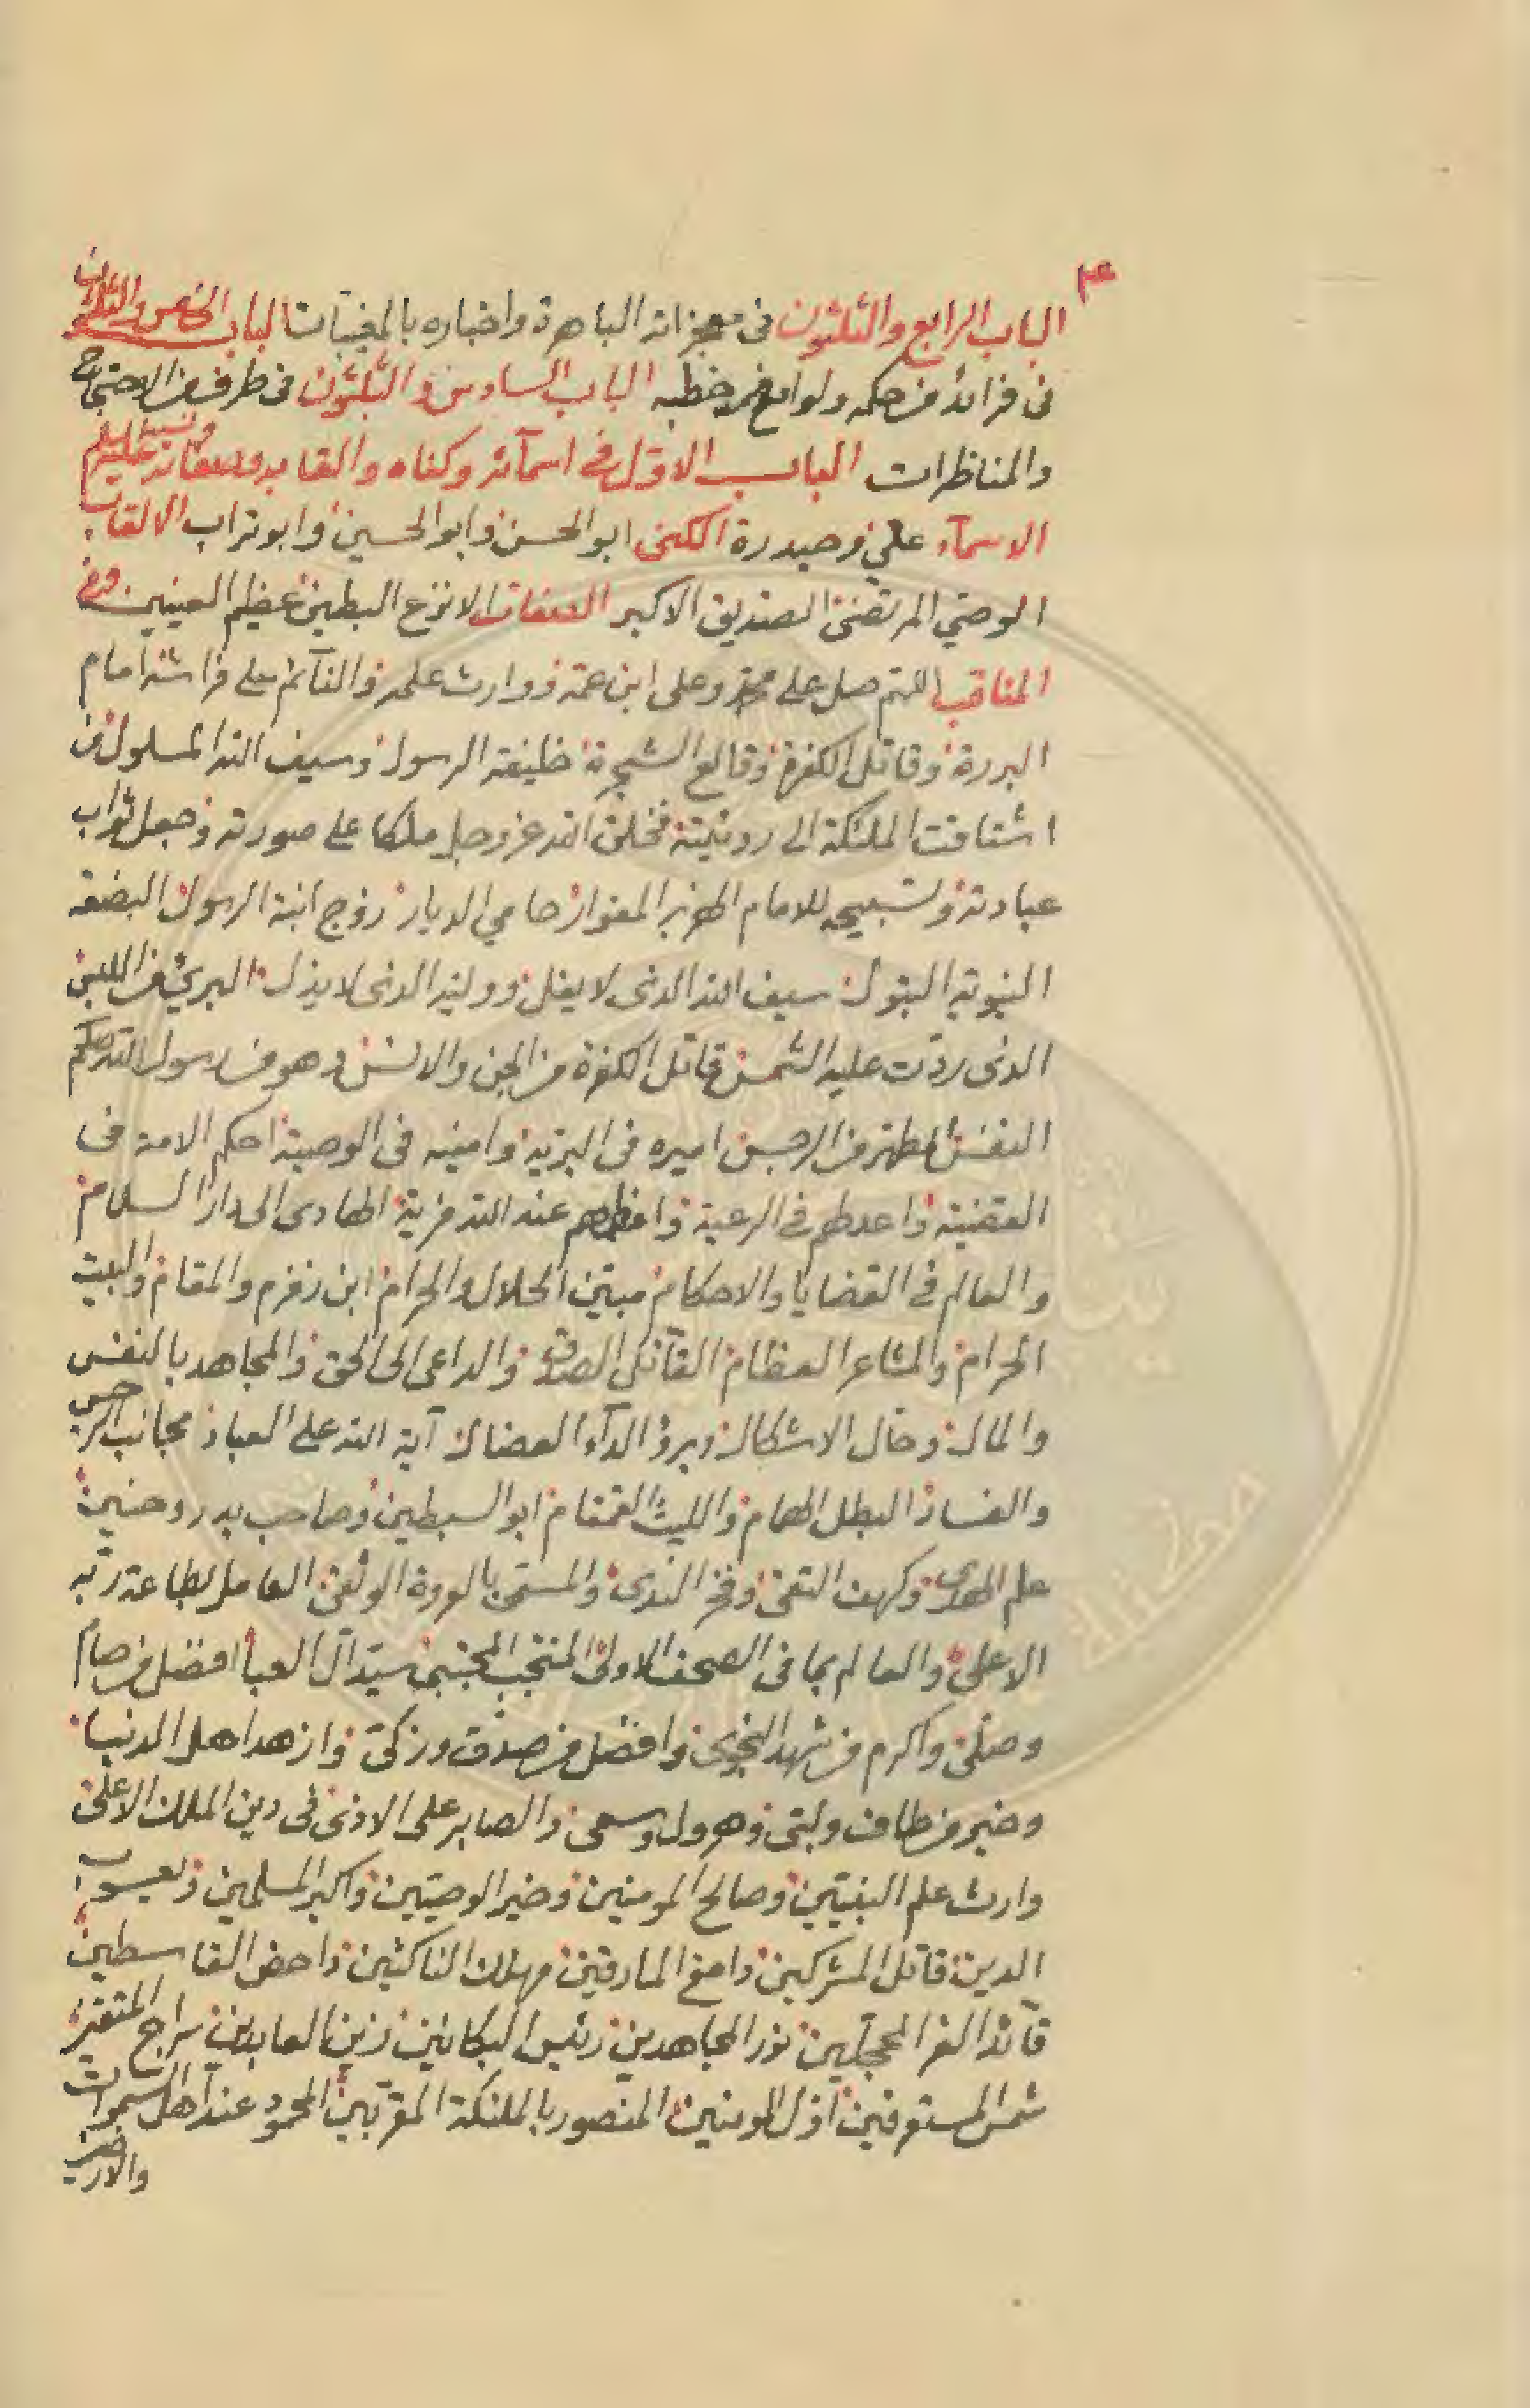 الباب الرابع والثلثون فى معجزاته الباهرة واخباره بالمغيبات الباب الخامس والثلاثون
فى فرائد من حكمه ولوامع من خطبه الباب السادس والثلثون فى طرف من الاحتجاج
والمناظرات الباب الاوّل فى اسمآئه وكناه والقابه وصفاته ونسبه عليه السلم
الاسمآء علي وحيدرة الكنى ابو الحسن وابو الحسين وابو تراب الالقاب
الوصيّ المرتضى الصديق الاكبر الصفات الانزع البطين عظيم العينين وفى
المناقب اللهم صل على محمد وعلى ابن عمه ووارث علمه والنآئم على فراشه امام
البررة وقاتل الكفرة وقالع الشجرة خليفة الرسول وسيف الله المسلول من
اشتاقت الملئكة الى رويته فخلق الله عز وجل ملكا على صورته وجعل ثواب
عبادته وتسبيحه للامام الهزبر المغوار حامي الديار زوج ابنة الرسول البضعة
النبوية البتول سيف الله الذى لا يفل ووليه الذى لا يذل البري من اللبس
الذى ردّت عليه الشمس قاتل الكفرة من الجن والانس وهو من رسول الله صلعم
النفس المطهر من الرجس اميره فى البريّة وامينه فى الوصية احكم الامة فى
القضية واعدلهم فى الرعية واعظمهم عند الله مزية الهادى الى دار السلام
والعالم فى القضايا والاحكام مبيّن الحلال والحرام ابن زمزم والمقام والبيت
الحرام والمشاعر العظام القآئل الصدق والداعى الى الحق والمجاهد بالنفس
والمال وحال الاشكال وبرؤ الدآء العضال آية الله على العباد مجانب الرجس
والفساد البطل الهمام والليث القمقام ابو السبطين وصاحب بدر وحنين
علم الهدى وكهف التقى وفخر الندى والمسمّى بالعروة الوثقى العامل بطاعة ربّه
الاعلى والعالم بما فى الصحف الاولى المنتجب المجتبى سيّد آل العبا افضل من صام
وصلّى واكرم من شهد النجوى وافضل من صدّق وزكّى وازهد اهل الدنيا
وخير من طاف ولبّى وهرول وسعى والصابر على الاذى فى دين الملك الاعلى
وارث علم النبيّين وصالح المومنين وخير الوصيّين واكبر المسلمين ويعسوب
الدين قاتل المشركين دامغ المارقين مهلك الناكثين داحض القاسطين
قآئد الغر المحجّلين نور المجاهدين رئيس البكائين زين العابدين سراج المتقين
شمس المستعرفين اوّل المومنين المنصور بالملئكة المقرّبين المحمود عند اهل السموات
والارضين